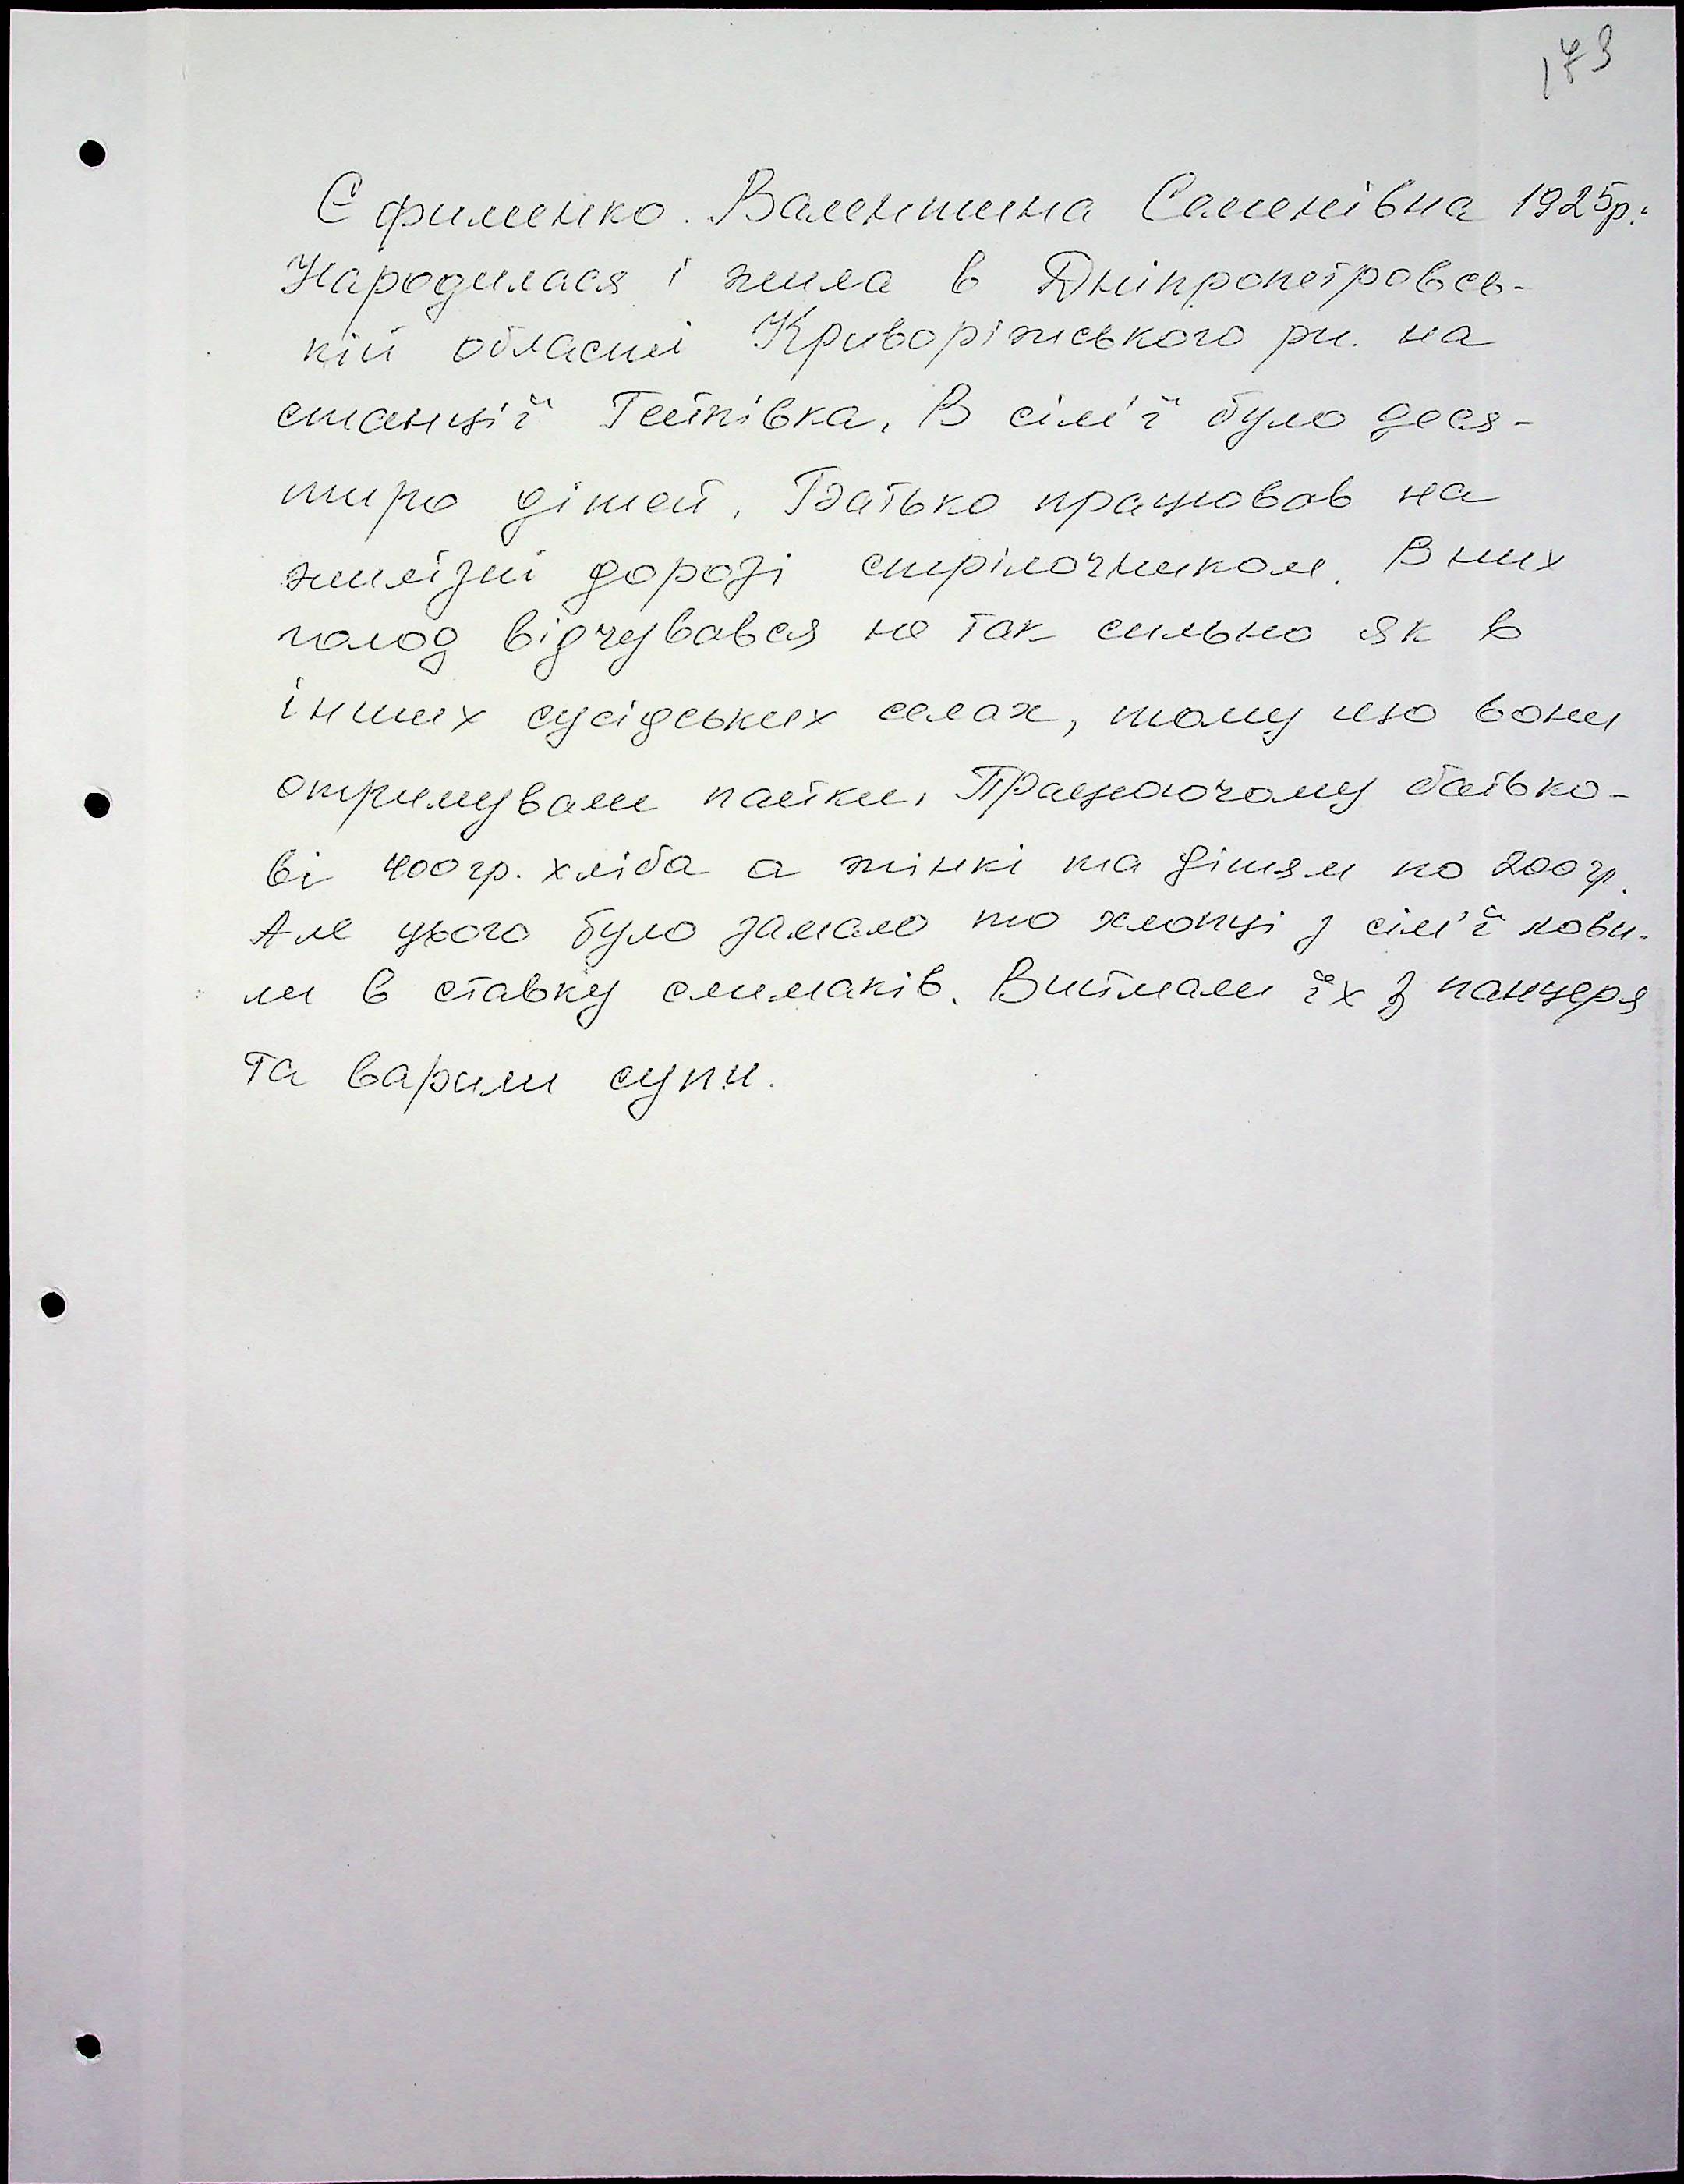 173
Єфименко. Валентина Семенівна 1925р.
Народилася і жила в Дніпропетровсь-
кій області Криворізького рн. на
станції Гейківка. В сім'ї було деся-
теро дітей. Батько працював на
желізні дорозі стрілочником. В них
голод відчувався не так сильно як в
інших сусідських селах, тому що вони
отримували пайки. Працюючому батько-
ві 400гр. хліба а жінкі та дітям по 200гр.
Але цього було замало то хлопці з сім'ї лови-
ли в ставку слимаків. Виймали їх з панцеря
та варили супи.